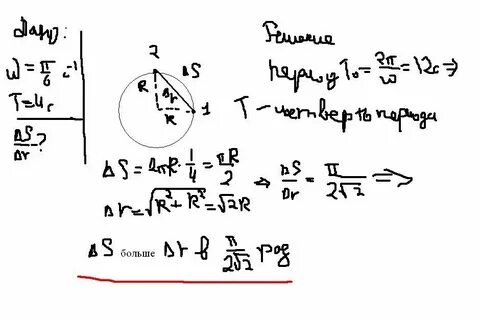 Дано:
ω = π/6 с⁻¹
T = 4с
ΔS/Δr - ?
2
ΔS
R
Δr
R
1
Решение
период T₀ = 2π/ω = 12с ⇒
T - четверть периода
ΔS = 2πR · 1/4 = πR/2 ⇒ ΔS/Δr = π/2√2 ⇒
Δr = √(R² + R²) = √2R
ΔS больше Δr в π/2√2 раз